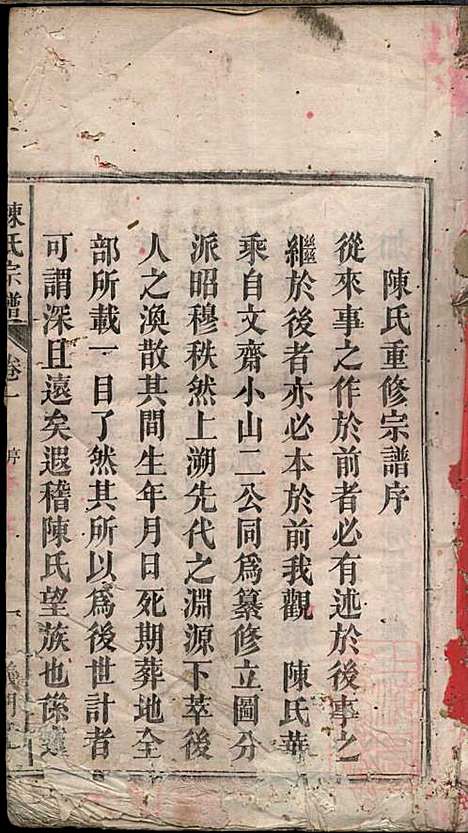 陳氏重修宗譜序
從來事之作於前者必有述於後事之
繼於後者亦必本於前我觀　陳氏華
乘自文齋小山二公同為纂修立圖分
派昭穆秩然上溯先代之淵源下萃後
人之渙散其間生年月日死期葬地全
部所載一目了然其所以為後世計者
可謂深且遠矣遐稽陳氏望族也係
陳氏宗譜 卷一 序 一